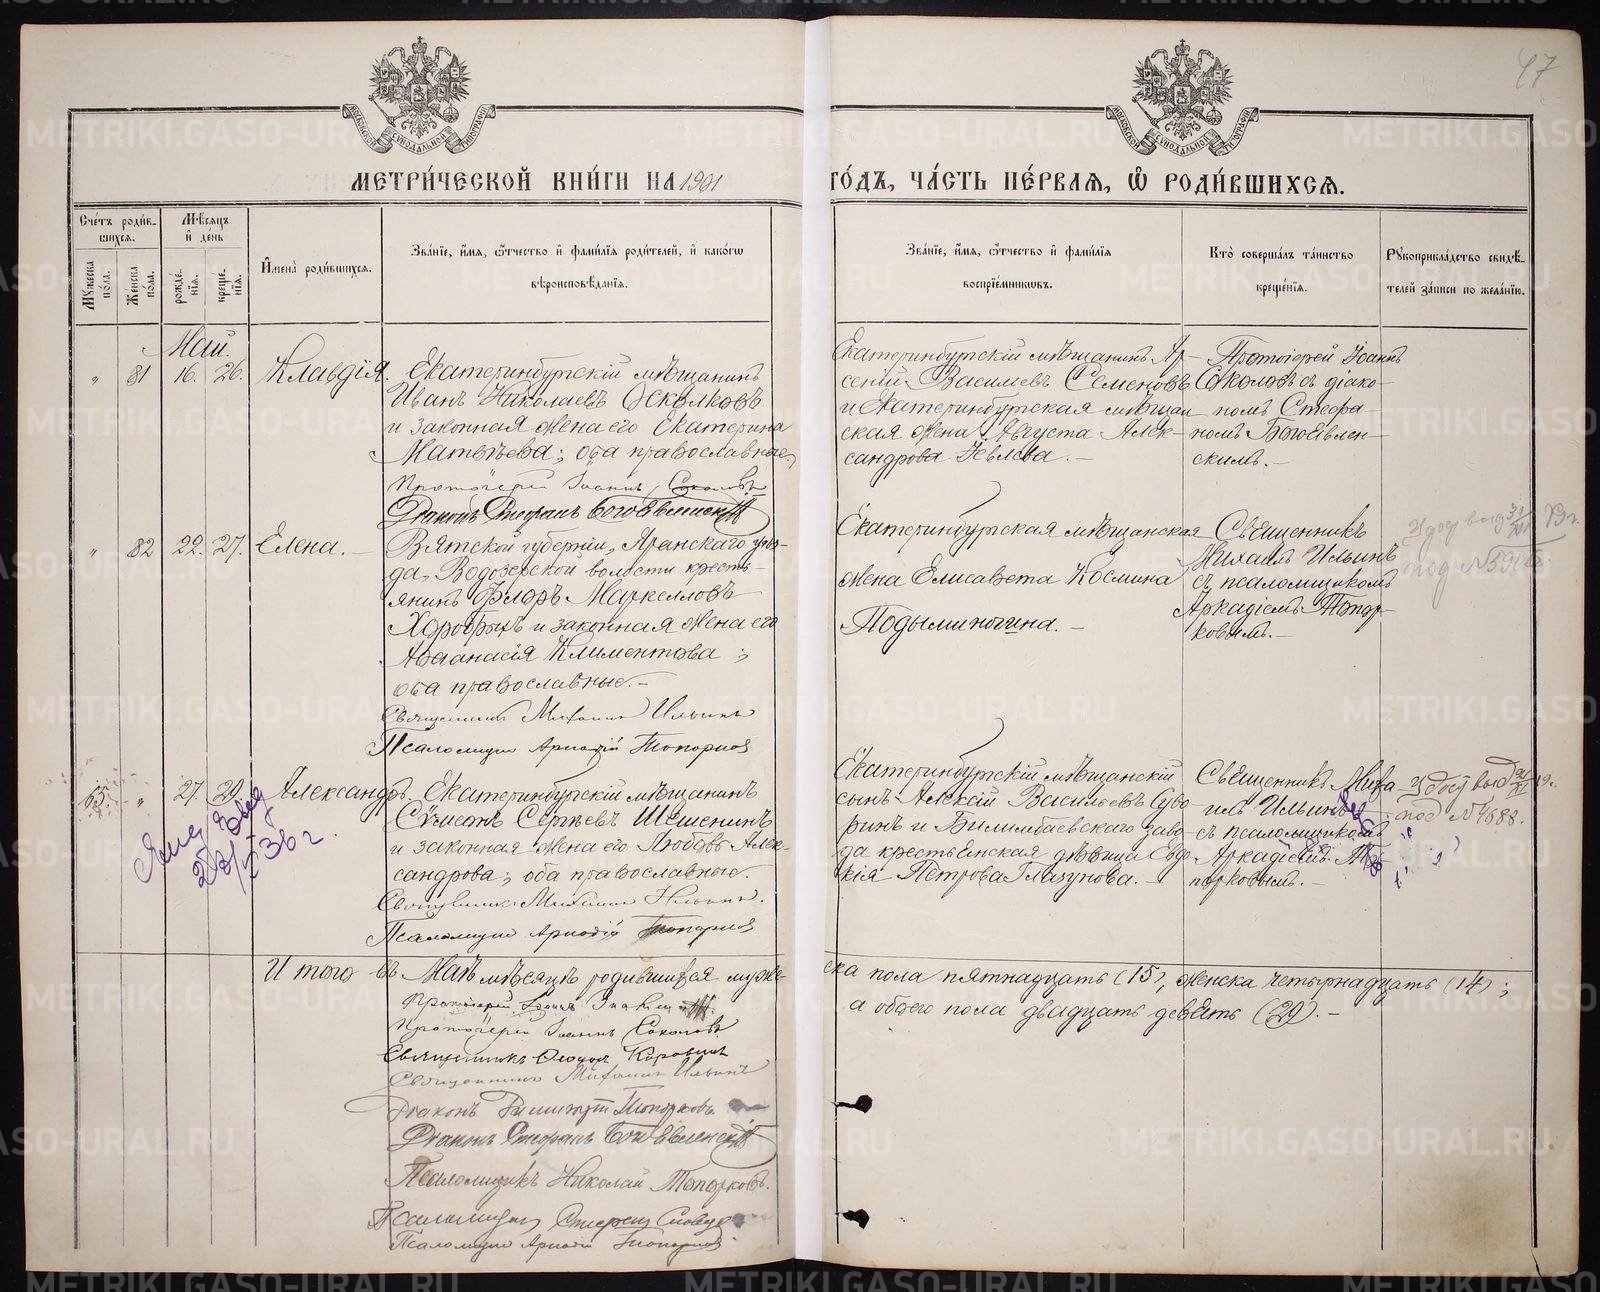 47
МЕТРИ́ЧЕСКОЙ КНИ́ГИ НА 1901 ГО́ДЪ, ЧА́СТЬ ПЕ́РВАЯ, Ѽ РОДИ́ВШИХСЯ.
Сче́тъ роди́в-
шихся.
Му́жеска по́ла.
Же́нска по́ла.
Мѣ́сяцъ
и҆ де́нь
рожде́нїя.
креще́нїя.
И҆мена̀ роди́вшихся.
Зва́нїе, и҆́мя, ѻ҆́тчество и҆ фами́лїя роди́телей, и҆ како́гѡ
вѣроисповѣ́данїя.
Зва́нїе, и҆́мя, ѻ҆́тчество и҆ фами́лїя
воспрїе́мниковъ.
Кто̀ соверша́лъ та́инство
креще́нїя.
Рꙋкоприкла́дство свидѣ́-
телей за́писи по жела́нїю.
Май.
" 81 16. 26. Клавдія. Екатеринбургскій мѣщанинъ
Иванъ Николаевъ Осколковъ
и законная жена его Екатерина
Матвѣева; оба православные.
Протоіерей Іоаннъ Соколовъ
Діаконъ Стефанъ Богоявленскій
Екатеринбургскій мѣщанинъ Ар-
сеній Васильевъ Семеновъ
и Екатеринбургская мѣщан
ская жена Августа Алек-
сандрова
Протоіерей Іоаннъ
Соколовъ съ діако-
номъ Стефа-
номъ Богоявлен-
скимъ.
" 82 22. 27. Елена. Вятской губерніи, Яранскаго уѣз-
да, Водозерской волости кресть-
янинъ Флоръ Маркелловъ
Хоробрыхъ и законная жена его
Афанасія Климентова;
оба православные.
Священникъ Михаилъ Ильинъ
Псаломщикъ Аркадій Топорковъ
Екатеринбургская мѣщанская
жена Елисавета Космина
Подыминогина.
Священникъ
Михаилъ Ильинъ
съ псаломщикомъ
Аркадіемъ Топор-
ковымъ.
под №
65. " 27. 29. Александръ. Екатеринбургскій мѣщанинъ
Сѵмеонъ Сергѣевъ Шешенинъ
и законная жена его Любовь Алек-
сандрова; оба православные.
Священникъ Михаилъ Ильинъ.
Псаломщикъ Аркадій Топорковъ
Екатеринбургскій мѣщанскій
сынъ Алексій Васильевъ Суво-
ринъ и Билимбаевскаго заво-
да крестьянская дѣвица Евдо-
кія Петрова Глазунова.
Священникъ Миха-
илъ Ильинъ
съ псаломщикомъ
Аркадіемъ То-
порковымъ.
под № 4688.
36 г.
И того въ Маѣ мѣсяцѣ родившихся муже-
ска пола пятнадцать (15), женска четырнадцать (14);
а обоего пола двадцать девять (29).
Протоіерей Іоаннъ Знаменскій.
Протоіерей Іоаннъ Соколовъ
Священникъ Ѳеодоръ Коровинъ
Священникъ Михаилъ Ильинъ
Діаконъ Димитрій Топорковъ
Діаконъ Стефанъ Богоявленскій
Псаломщикъ Николай Топорковъ.
Псаломщикъ
Псаломщикъ Аркадій Топорковъ
METRIKI.GASO-URAL.RU